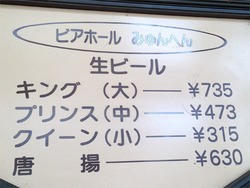 ビアホール みゅんへん
生ビール
キング (大) ── ¥735
プリンス (中) ── ¥473
クイーン (小) ── ¥315
唐揚 ── ¥630